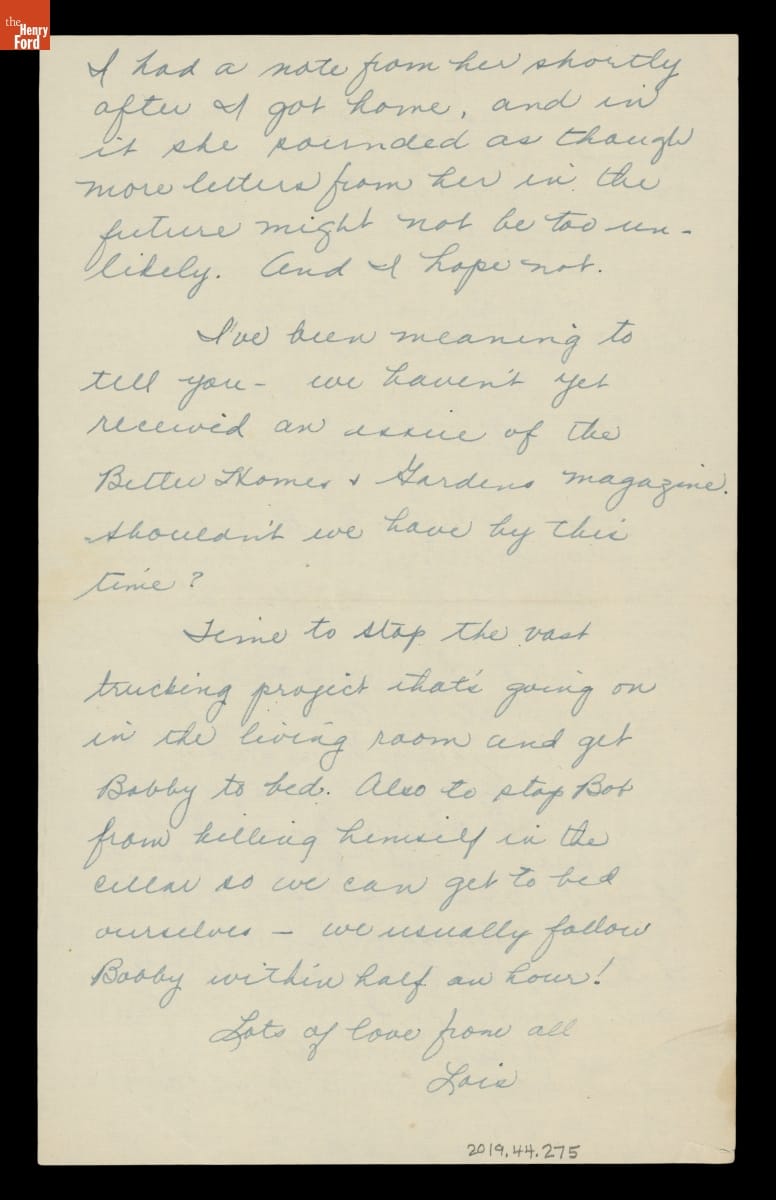 the
Henry
Ford
I had a note from her shortly
after I got home, and in
it she sounded as though
more letters from her in the
future might not be too un-
likely. And I hope not.
I've been meaning to
tell you - we haven't yet
received an issue of the
Better Homes & Gardens magazine.
Shouldn't we have by this
time?
Time to stop the vast
trucking project that's going on
in the living room and get
Bobby to bed. Also to stop Bob
from killing himself in the
cellar so we can get to bed
ourselves - we usually follow
Bobby within half an hour!
Lots of love from all
Lois
2019.44.275